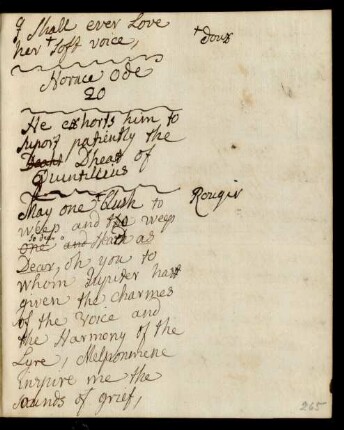 I Shall ever Love
her + Soft voice,
+ doux
Horace Ode
20
He exhorts him to
suport patiently the
Death Dheat of
Quintilius
May one + blush to
Rougir
weep and to weep
one so dear and
as
Dear, oh you to
whom Jupiter hast
given the charmes
of the Voice and
the Harmony of the
Lyre, Melponmene
Inspire me the
sounds of grief,
265